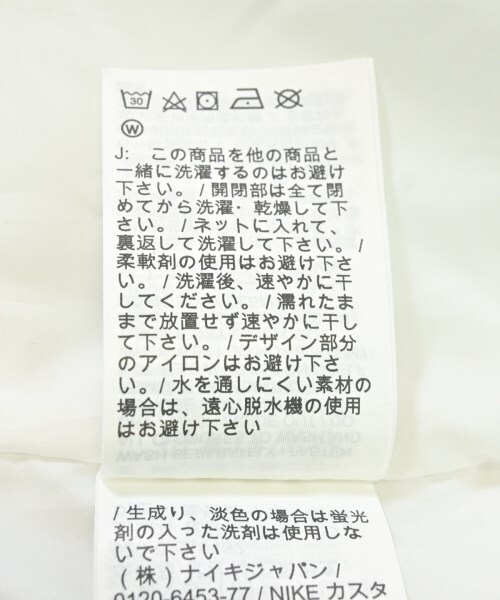 30
W
J: この商品を他の商品と
一緒に洗濯するのはお避け
下さい。/開閉部は全て閉
めてから洗濯・乾燥して下
さい。/ネットに入れて、
裏返して洗濯して下さい。/
柔軟剤の使用はお避け下さ
い。/洗濯後、速やかに干
してください。/濡れたま
まで放置せず速やかに干し
て下さい。/デザイン部分
のアイロンはお避け下さ
い。/水を通しにくい素材の
場合は、遠心脱水機の使用
はお避け下さい
/生成り、淡色の場合は蛍光
剤の入った洗剤は使用しな
いで下さい
(株)ナイキジャパン/
0120-6453-77 / NIKE カスタ